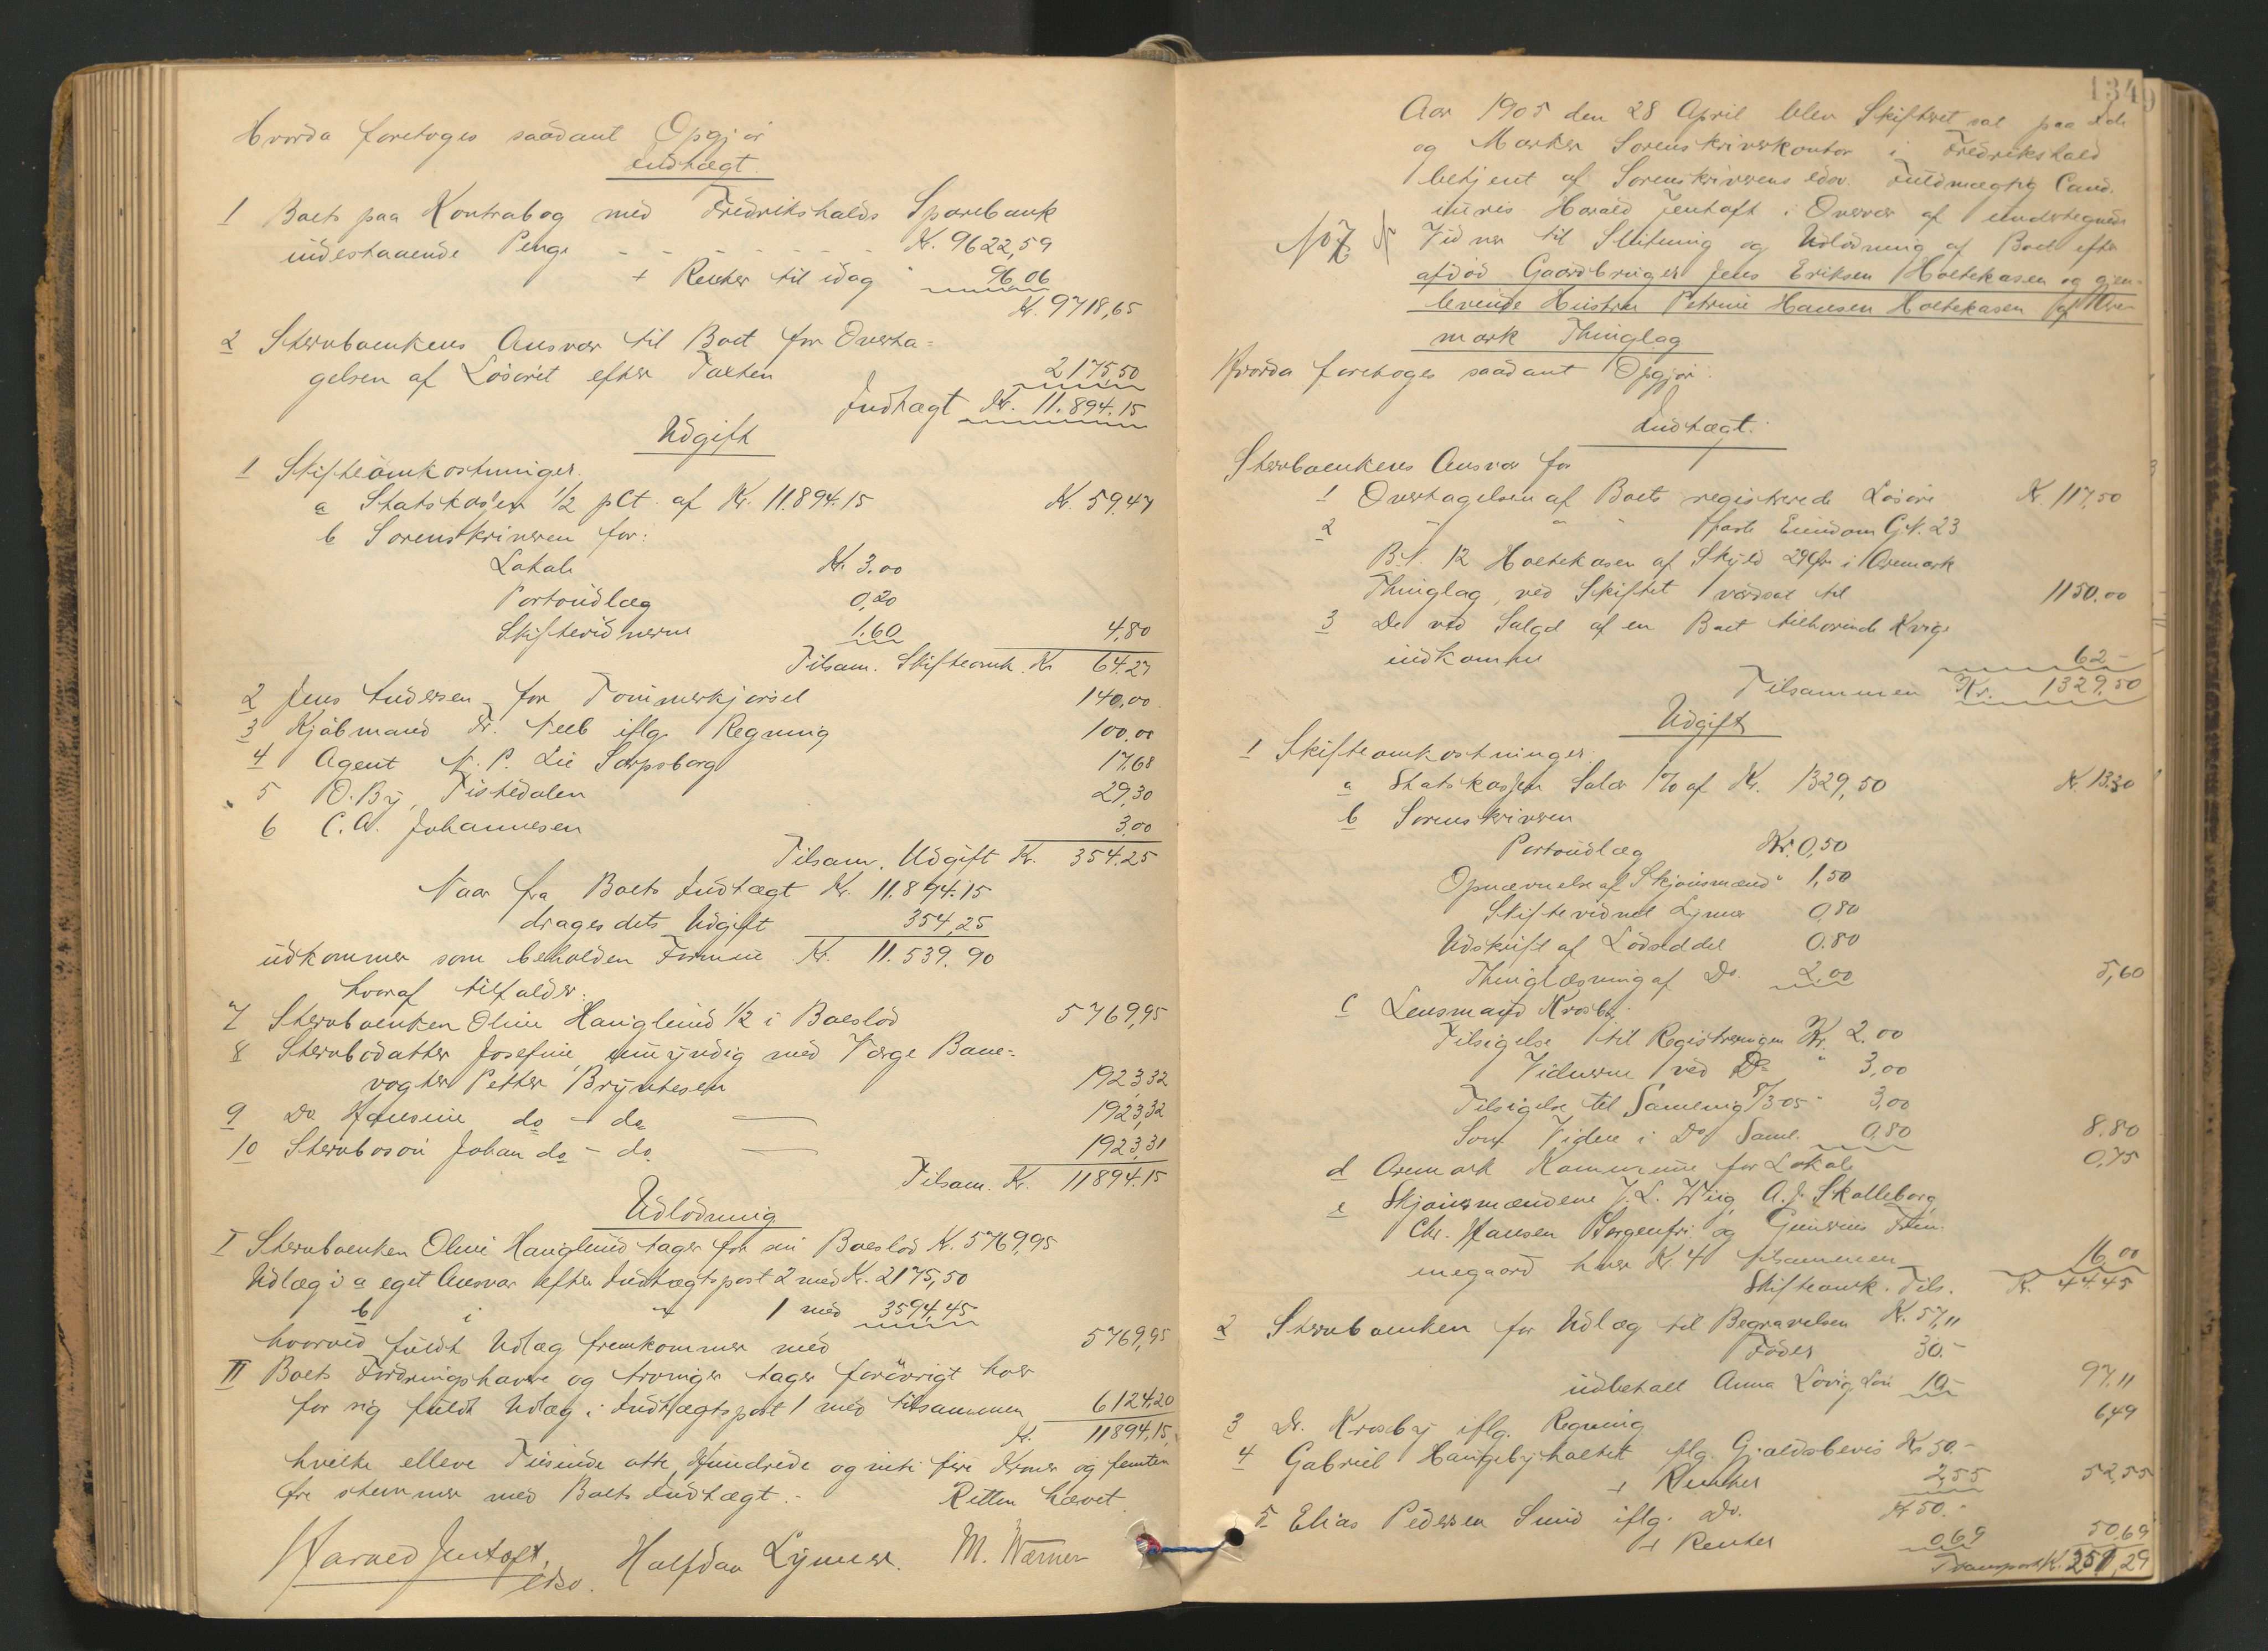 Hvorda foretoges saadant Opgjør
Indtægt
1 Boets paa Kontrabog med Fredrikshalds Sparebank
indestaaende Penge - - - - - - - Kr. 9622,59
+ Renter til idag " 96.06
Kr. 9718,65
2 Stervboenkens Ansvar til Boet for Overta=
gelsen af Løsøret efter Taxten 2175,50
Indtægt Kr. 11.894.15
Udgift
1 Skifteomkostninger.
a Statskassen 1/2 pCt. af Kr. 11.894.15 Kr. 59.47
b Sorenskriveren for:
Lokale Kr. 3.00
Portoudlæg 0,20
Skiftevidnerne 1.60 4,80
Tilsam. Skifteomk. Kr 64.27
2 Jens Andersen for Tømmerkjørsel 140,00
3 Kjøbmand Fr. iflg. Regning 100.00
4 Agent N. P. Lie Sarpsborg 17.68
5 O. By, Tistedalen 29,30
6 C. A. Johannesen 3.00
Tilsam. Udgift Kr. 354.25
Naar fra Boets Indtægt Kr. 11.894.15
drages dets Udgift 354,25
udkommer som beholden Formue Kr. 11.539.90
hvoraf tilfalder:
7 Stervboenken Oline Hauglund 1/2 i Boeslod 5769,95
8 Stervbodatter Josefine, umyndig med Værge Bane=
vogter Petter Bryntesen 1923,32
9 Do. Hansine do - do 1923,32
10 Stervbosøn Johan do - do. 1923,31
Tilsam. Kr. 11894.15
Udlodning
I Stervboenken Oline Hauglund tager for sin Boeslod Kr. 5769,95
Udlæg i a eget Ansvar efter Indtægtspost 2 med Kr. 2175,50
b i " 1 med 3594,45
hvorved fuldt Udlæg fremkommer med 5769,95
II Boets Fordringshavere og Arvinger tager forøvrigt hver
for sig fuldt Udlæg i Indtægtspost 1 med tilsammen 6124,20
Kr. 11894,15
hvilke elleve Tusinde otte Hundrede og niti fire Kroner og femten
Øre stemmer med Boets Indtægt.- Retten hævet.
Harald Jentoft, edsv. Halfdan Lymer. M. Wærner
1349
Aar 1905 den 28 April blev Skifteret sat paa Idd
og Marker Sorenskriverkontor i Fredrikshald
betjent af Sorenskriverens edsv. Fuldmægtig Cand.
juris Harald Jentoft i Overvær af undertegnede
No 7 Vidner til Slutning og Udlodning af Boet efter
afdød Gaardbruger Jens Eriksen Holtekasen og gjen=
levende Hustru Petrine Hansen Holtekasen af Are=
mark Thinglag
Hvorda foretoges saadant Opgjør:
Indtægt.
Stervboenkens Ansvar for
1 Overtagelsen af Boets registrerede Løsøre Kr. 117,50
2 " " " faste Eiendom G.N. 23
B.N. 12 Holtekasen af Skyld 29 Øre i Aremark
Thinglag, ved Skiftet værdsat til 1150.00
3 De ved Salget af en Boet tilhørende Kvige
indkomne 62 -
Tilsammen Kr. 1329,50
Udgift
1 Skifteomkostninger.
a Statskassen Salær 1 % af Kr. 1329,50 Kr. 13.30
b Sorenskriveren
Portoudlæg Kr. 0,50
Opnævnelse af Skjønsmænd " 1,50
Skiftevidnet Lymer 0,80
Udskrift af Lodseddel 0.80
Thinglæsning af Do. 2,00 5,60
c Lensmand Krosby:
Tilsigelse til Registreringen Kr. 2.00
Vidnerne ved Do " 3,00
Tilsigelse til Samling 8/3 05 - 3,00
Som Vidne i Do Saml. 0,80 8.80
d Aremark Kommune for Lokale 0,75
e Skjønsmændene J. L. Wiig, A. J. Skolleborg,
Chr. Hansen Sorgenfri og
megaard hver Kr. 4 tilsammen 16.00
Skifteomk. Tils. Kr. 44.45
2 Stervboenken for Udlæg til Begravelsen Kr. 57,11
Foder 30.-
udbetalt Anna Lovig Løn 10- 97,11
3 Dr. Krosby iflg. Regning 6,49
4 Gabriel Haugbyholtet iflg. Gjældsbevis Kr 50.-
+ Renter 2,55 52,55
5 Elias Pedersen Sund iflg. Do. Kr 50.-
+ Renter 0,69 50,69
Transport Kr. 251,29